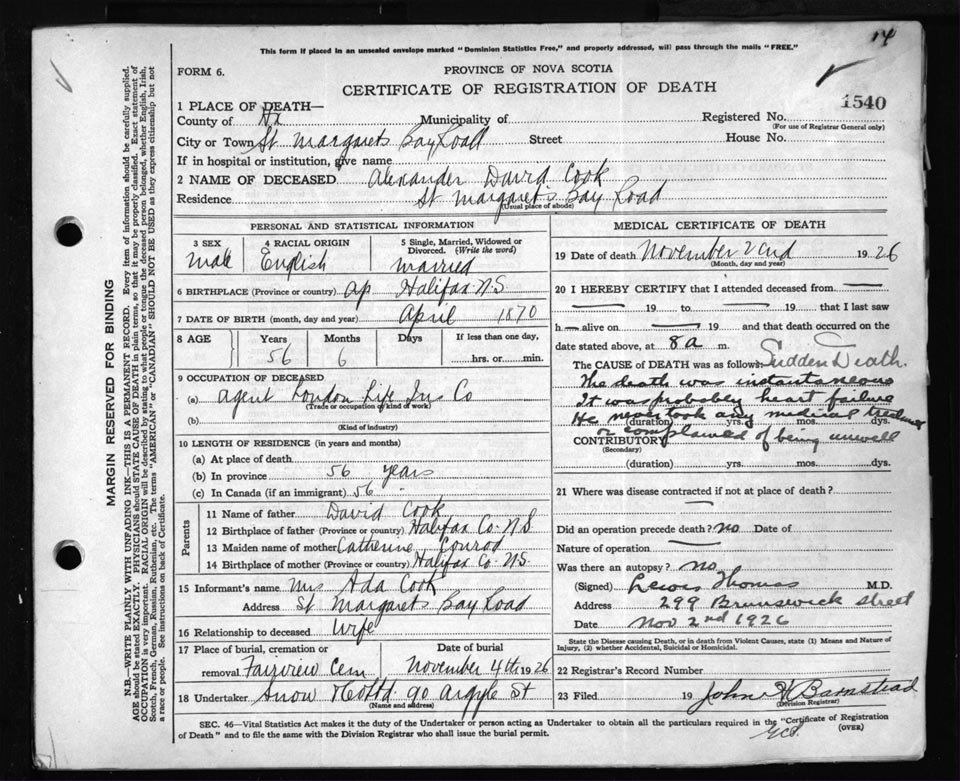 14
This form if placed in an unsealed envelope marked "Dominion Statistics Free," and properly addressed, will pass through the mails "FREE."
FORM 6.
PROVINCE OF NOVA SCOTIA
CERTIFICATE OF REGISTRATION OF DEATH
1540
1 PLACE OF DEATH—
County of Hx Municipality of Registered No.
(For use of Registrar General only)
City or Town St Margarets Bay Road Street House No.
If in hospital or institution, give name
2 NAME OF DECEASED Alexander David Cook
Residence St Margaret's Bay Road
(Usual place of abode)
PERSONAL AND STATISTICAL INFORMATION
3 SEX 4 RACIAL ORIGIN 5 Single, Married, Widowed or Divorced. (Write the word)
male English married
6 BIRTHPLACE (Province or country) Ap Halifax N.S
7 DATE OF BIRTH (month, day and year) April 1870
8 AGE Years Months Days If less than one day,
56 6 hrs. or min.
9 OCCUPATION OF DECEASED
(a) agent London Life Ins Co
(Trade or occupation or kind of work)
(b)
(Kind of industry)
10 LENGTH OF RESIDENCE (in years and months)
(a) At place of death
(b) In province 56 years
(c) In Canada (if an immigrant) 56 "
Parents
11 Name of father David Cook
12 Birthplace of father (Province or country) Halifax Co. N.S.
13 Maiden name of mother Catherine Conrod
14 Birthplace of mother (Province or country) Halifax Co. N.S.
15 Informant's name Mrs Ada Cook
Address St Margarets Bay Road
16 Relationship to deceased Wife
17 Place of burial, cremation or removal Date of burial
Fairview Cem November 4th 1926
18 Undertaker Snow & Co Ltd. 90 Argyle St
(Name and address)
MEDICAL CERTIFICATE OF DEATH
19 Date of death November 2nd 1926
(Month, day and year)
20 I HEREBY CERTIFY that I attended deceased from
19 to 19 that I last saw
h— alive on 19 and that death occurred on the
date stated above, at 8 a m.
The CAUSE OF DEATH was as follows: Sudden Death.
The death was instantaneous
It was probably heart failure
He never took any medical treatment
(duration) yrs. mos. dys.
or complained of being unwell
CONTRIBUTORY
(Secondary)
(duration) yrs. mos. dys.
21 Where was disease contracted if not at place of death?
Did an operation precede death? no Date of
Nature of operation
Was there an autopsy? no
(Signed) Lewis Thomas M.D.
Address 299 Brunswick Street
Date Nov 2nd 1926
State the Disease causing Death, or in death from Violent Causes, state (1) Means and Nature of
Injury, (2) whether Accidental, Suicidal or Homicidal.
22 Registrar's Record Number
23 Filed 19 John H Barnstead
(Division Registrar)
SEC. 46—Vital Statistics Act makes it the duty of the Undertaker or person acting as Undertaker to obtain all the particulars required in the "Certificate of Registration
of Death" and to file the same with the Division Registrar who shall issue the burial permit.
(OVER)
MARGIN RESERVED FOR BINDING
N.B.—WRITE PLAINLY WITH UNFADING INK—THIS IS A PERMANENT RECORD. Every item of information should be carefully supplied.
AGE should be stated EXACTLY. PHYSICIANS should STATE CAUSE OF DEATH in plain terms, so that it may be properly classified. Exact statement of
OCCUPATION is very important. RACIAL ORIGIN will be described by stating to what people or tongue the deceased person belonged, whether English, Irish,
Scotch, French, German, Russian, Ruthenian, etc. The terms "AMERICAN" or "CANADIAN" SHOULD NOT BE USED as they express citizenship but not
a race or people. See instructions on back of Certificate.